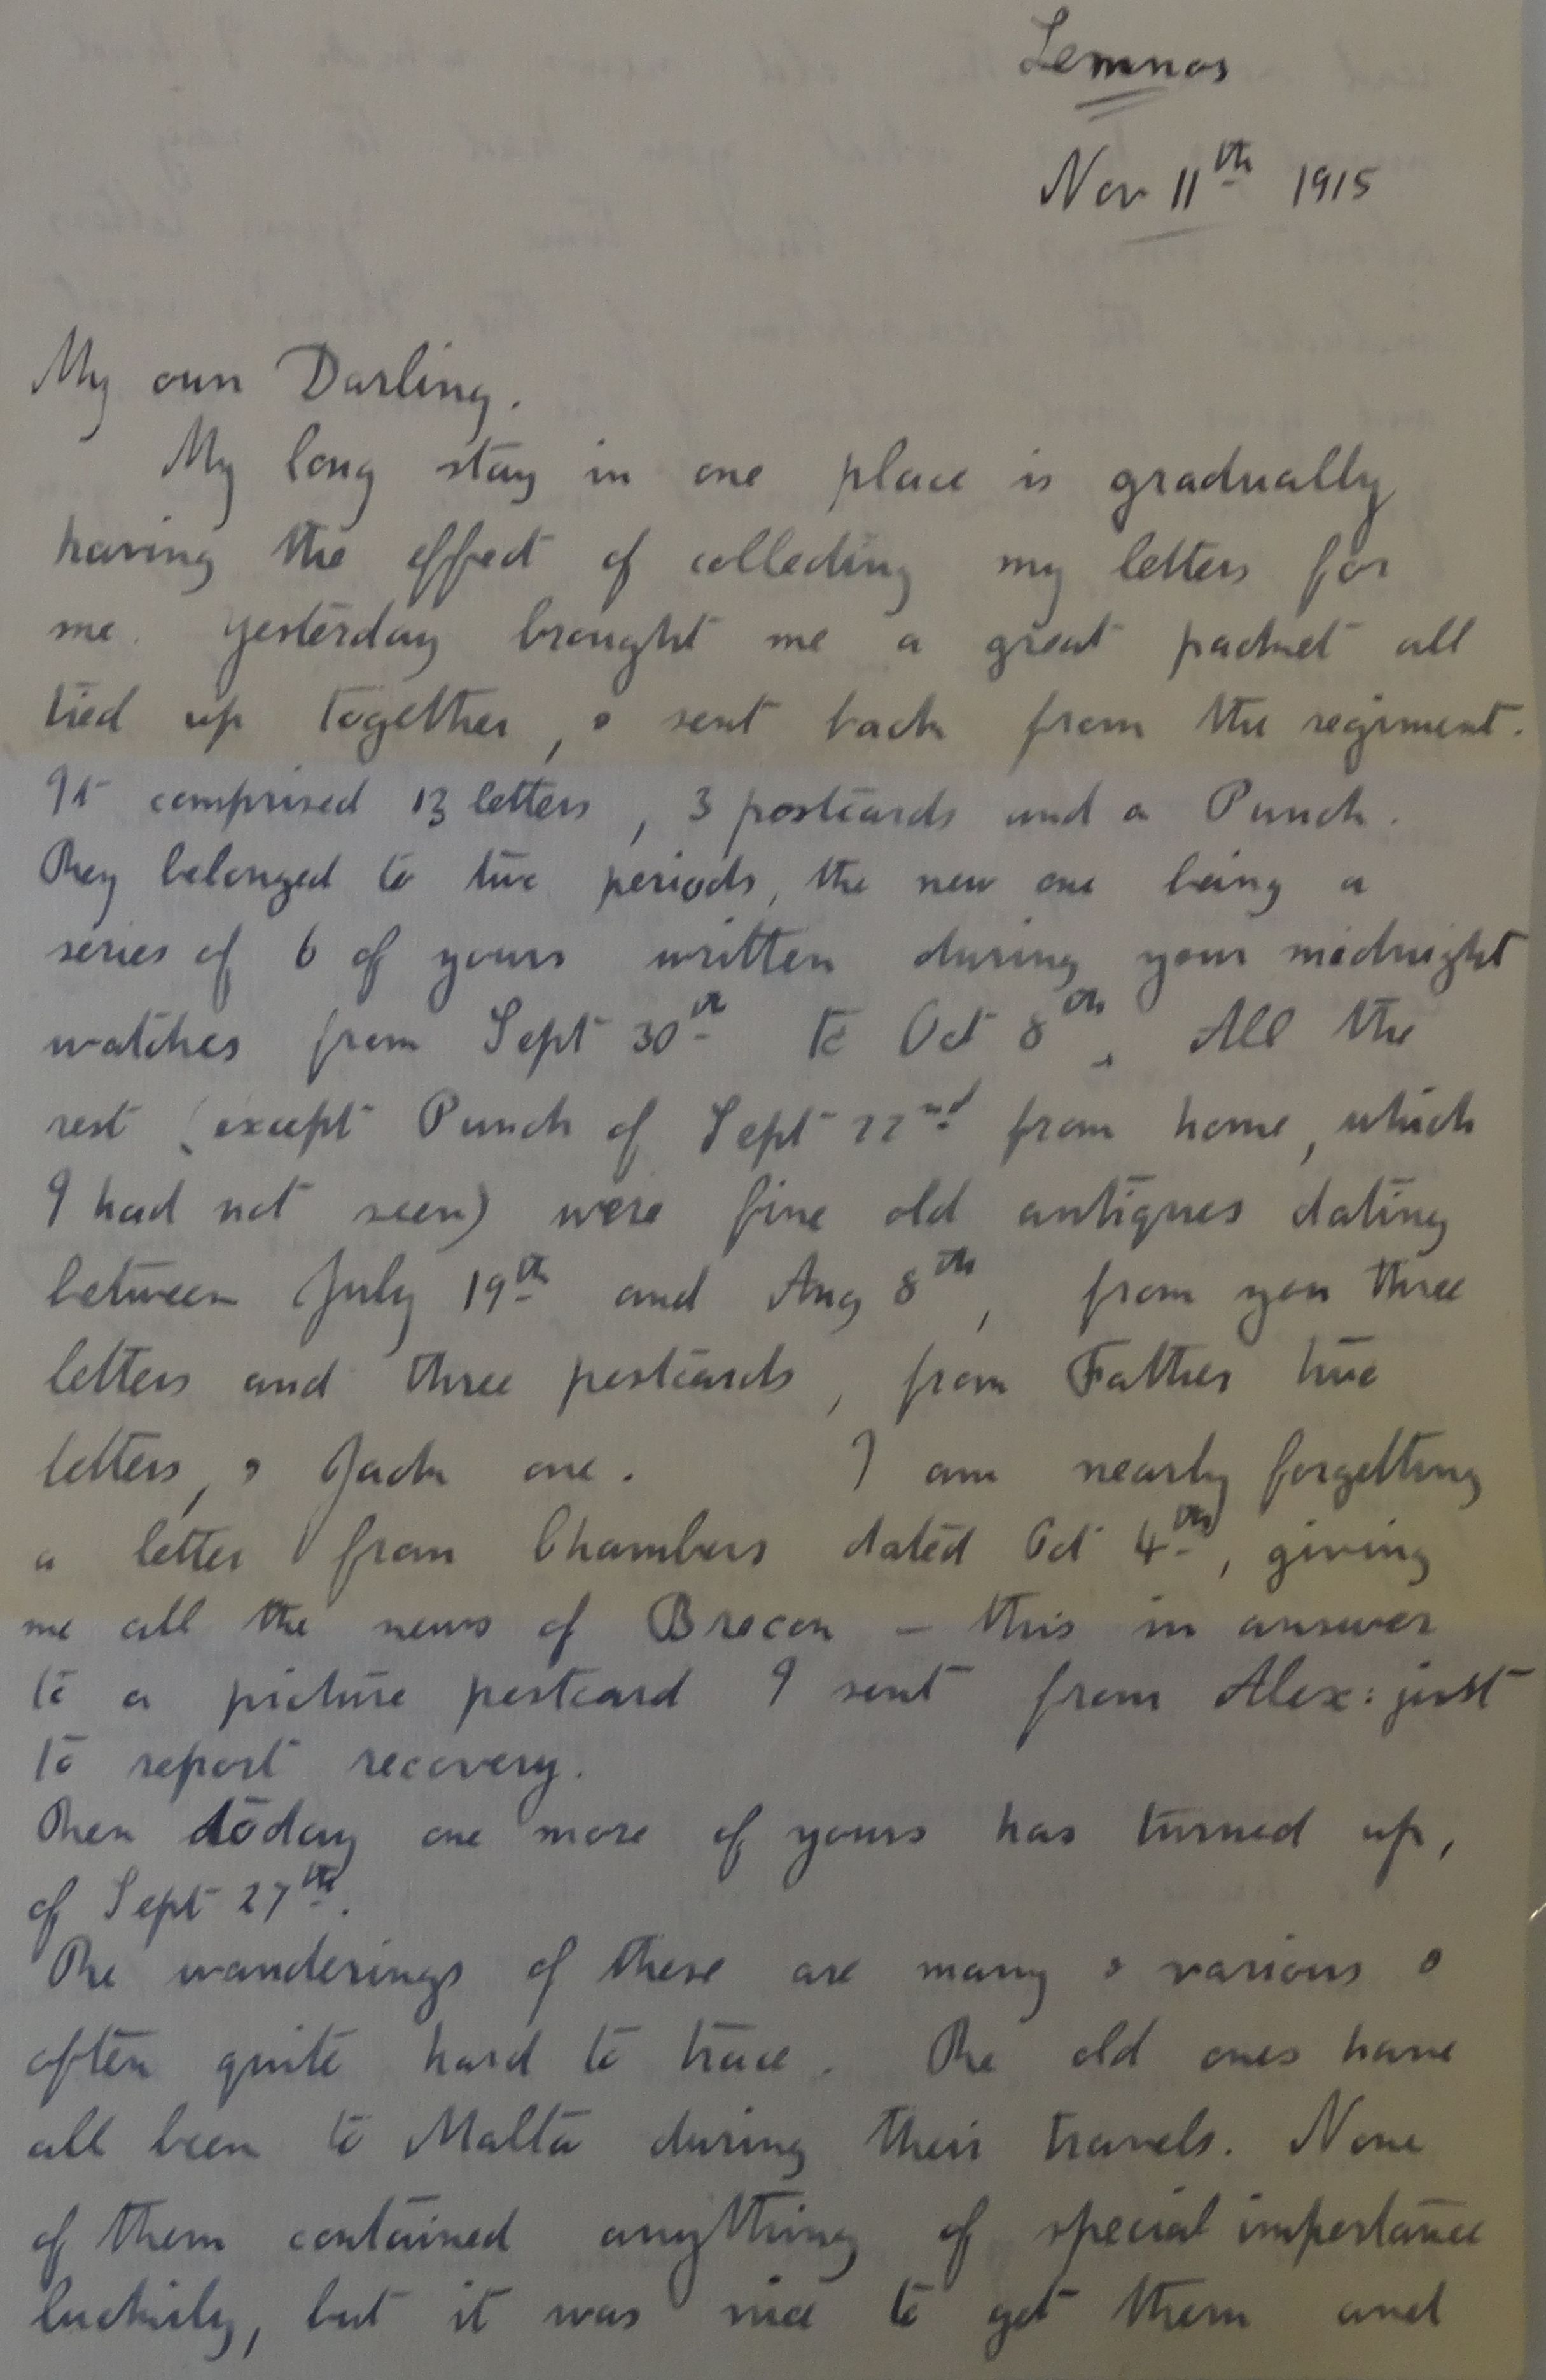 Lemnos
Nov 11th 1915
My own Darling.
My long stay in one place is gradually
having the effect of collecting my letters for
me. Yesterday brought me a great packet all
tied up together, & sent back from the regiment.
It comprised 13 letters, 3 postcards and a Punch.
They belonged to two periods, the new one being a
series of 6 of yours written during your midnight
watches from Sept 30th to Oct 8th. All the
rest (except Punch of Sept 22nd from home, which
I had not seen) were fine old antiques dating
between July 19th and Aug 8th, from you three
letters and three postcards, from Father two
letters, & Jack one. I am nearly forgetting
a letter from Chambers dated Oct 4th, giving
me all the news of Brecon – this in answer
to a picture postcard I sent from Alex: just
to report recovery.
Then today one more of yours has turned up,
of Sept 27th.
The wanderings of these are many & various &
often quite hard to trace. The old ones have
all been to Malta during their travels. None
of them contained anything of special importance
luckily, but it was nice to get them and